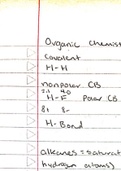 Organic Chemist
Covalent
H-H
nonpolar CB
2.1 4.0
H-F Polar CB
δ+ δ-
H-Bond
alkanes = saturat
hydrogen atoms)